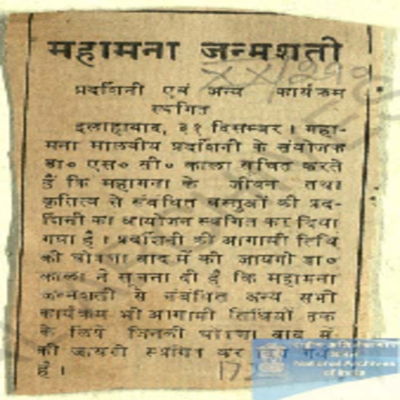 महामना जन्मशती
प्रदर्शिनी एवं अन्य कार्यक्रम
स्थगित
इलाहाबाद, ३१ दिसम्बर। महा-
मना मालवीय प्रदर्शिनी के संयोजक
डा० एस० सी० काला सूचित करते
हैं कि महामना के जीवन तथा
कृतित्व से संबंधित वस्तुओं की प्रद-
र्शिनी का आयोजन स्थगित कर दिया
गया है। प्रदर्शिनी की आगामी तिथि
की घोषणा बाद में की जायगी डा०
काला ने सूचना दी है कि महामना
जन्मशती से संबंधित अन्य सभी
कार्यक्रम भी आगामी तिथियों तक
के लिये जिनकी घोषणा बाद में
की जायगी स्थगित कर दिये गये
हैं।
National Archives
of India